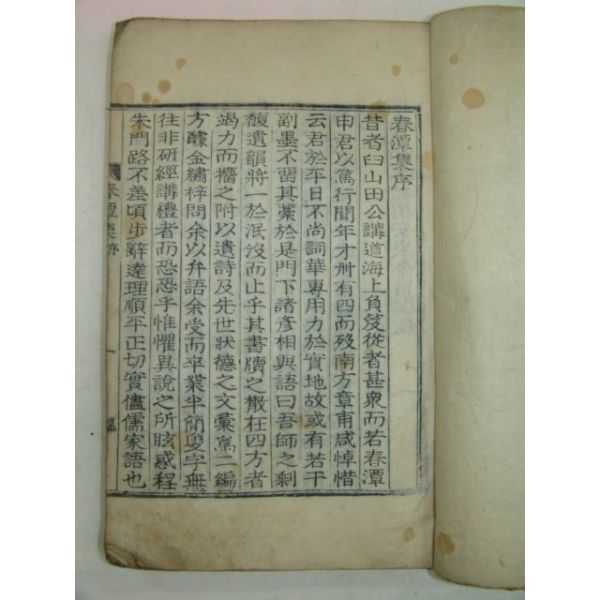 春潭集序
昔者臼山田公講道海上負笈從者甚衆而若春潭
申君以篤行聞年才卅有四而歿南方章甫咸悼惜
云君於平日不尚詞華專用力於實地故或有若干
副墨不畱其藁於是門下諸彦相與語曰吾師之剩
馥遺韻將一於泯沒而止乎其書牘之散在四方者
竭力而擣之附以遺詩及先世狀德之文彙爲二編
方醵金繡梓問余以弁語余受而卒業半簡隻字無
往非研經講禮者而恐恐乎惟懼異說之所眩惑程
朱門路不差頃步辭達理順平正切實儘儒家語也
春潭集序
一